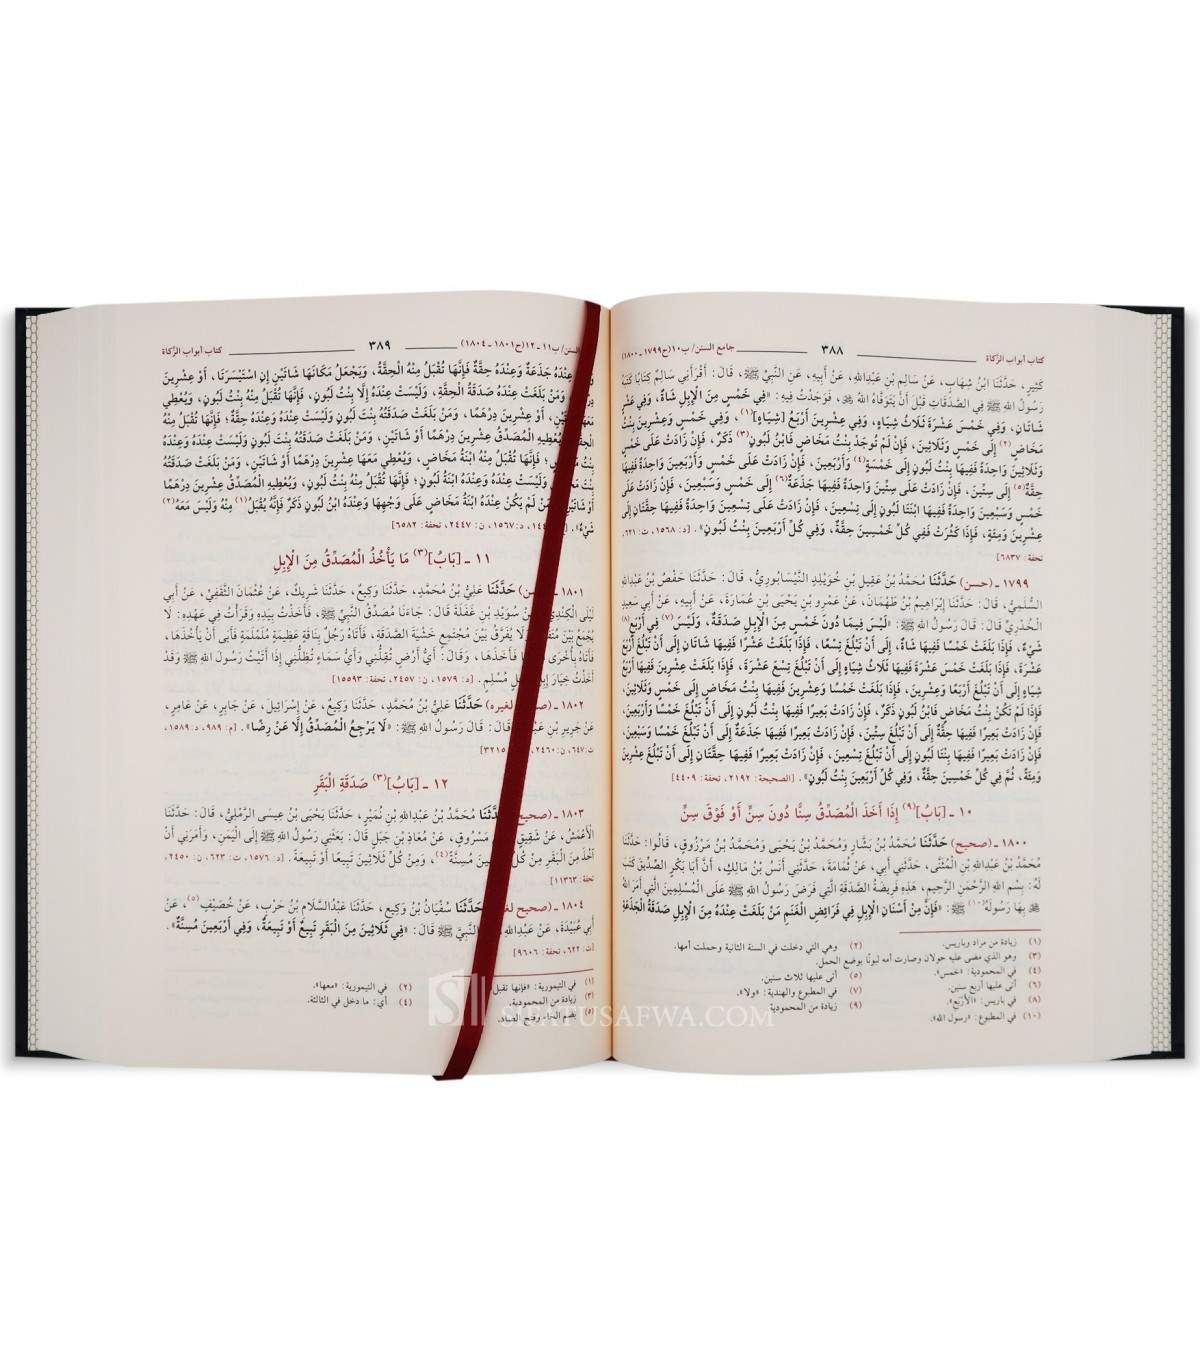 كتاب أبواب الزكاة ٣٨٨ جامع السنن/ ب١٠(ح١٧٩٩ـ١٨٠٠)
كَثِيرٍ، حَدَّثَنَا ابْنُ شِهَابٍ، عَنْ سَالِمِ بْنِ عَبْدِاللهِ، عَنْ أَبِيهِ، عَنِ النَّبِيِّ ﷺ، قَالَ: أَقْرَأَنِي سَالِمٌ كِتَابًا كَتَبَهُ
رَسُولُ اللهِ ﷺ فِي الصَّدَقَاتِ قَبْلَ أَنْ يَتَوَفَّاهُ اللهُ ﷻ، فَوَجَدْتُ فِيهِ: «فِي خَمْسٍ مِنَ الْإِبِلِ شَاةٌ، وَفِي عَشْرٍ
شَاتَانِ، وَفِي خَمْسَ عَشْرَةَ ثَلَاثُ شِيَاهٍ، وَفِي عِشْرِينَ أَرْبَعُ [شِيَاهٍ](١)، وَفِي خَمْسٍ وَعِشْرِينَ بِنْتُ
مَخَاضٍ(٢) إِلَى خَمْسٍ وَثَلَاثِينَ، فَإِنْ لَمْ تُوجَدْ بِنْتُ مَخَاضٍ فَابْنُ لَبُونٍ(٣) ذَكَرٌ، فَإِنْ زَادَتْ عَلَى خَمْسٍ
وَثَلَاثِينَ وَاحِدَةً فَفِيهَا بِنْتُ لَبُونٍ إِلَى خَمْسَةٍ(٤) وَأَرْبَعِينَ، فَإِنْ زَادَتْ عَلَى خَمْسٍ وَأَرْبَعِينَ وَاحِدَةً فَفِيهَا
حِقَّةٌ(٥) إِلَى سِتِّينَ، فَإِنْ زَادَتْ عَلَى سِتِّينَ وَاحِدَةً فَفِيهَا جَذَعَةٌ(٦) إِلَى خَمْسٍ وَسَبْعِينَ، فَإِنْ زَادَتْ عَلَى
خَمْسٍ وَسَبْعِينَ وَاحِدَةً فَفِيهَا ابْنَتَا لَبُونٍ إِلَى تِسْعِينَ، فَإِنْ زَادَتْ عَلَى تِسْعِينَ وَاحِدَةً فَفِيهَا حِقَّتَانِ إِلَى
عِشْرِينَ وَمِئَةٍ، فَإِذَا كَثُرَتْ فَفِي كُلِّ خَمْسِينَ حِقَّةٌ، وَفِي كُلِّ أَرْبَعِينَ بِنْتُ لَبُونٍ». [د: ١٥٦٨، ت: ٦٢١،
تحفة: ٦٨٣٧]
١٧٩٩ ـ (حسن) حَدَّثَنَا مُحَمَّدُ بْنُ عَقِيلِ بْنِ خُوَيْلِدٍ النَّيْسَابُورِيُّ، قَالَ: حَدَّثَنَا حَفْصُ بْنُ عَبْدِاللهِ
السُّلَمِيُّ، قَالَ: حَدَّثَنَا إِبْرَاهِيمُ بْنُ طَهْمَانَ، عَنْ عَمْرِو بْنِ يَحْيَى بْنِ عُمَارَةَ، عَنْ أَبِيهِ، عَنْ أَبِي سَعِيدٍ
الْخُدْرِيِّ قَالَ: قَالَ رَسُولُ اللهِ ﷺ: «لَيْسَ فِيمَا دُونَ خَمْسٍ مِنَ الْإِبِلِ صَدَقَةٌ، وَلَيْسَ(٧) فِي أَرْبَعٍ(٨)
شَيْءٌ، فَإِذَا بَلَغَتْ خَمْسًا فَفِيهَا شَاةٌ، إِلَى أَنْ تَبْلُغَ تِسْعًا، فَإِذَا بَلَغَتْ عَشْرًا فَفِيهَا شَاتَانِ إِلَى أَنْ تَبْلُغَ أَرْبَعَ
عَشْرَةَ، فَإِذَا بَلَغَتْ خَمْسَ عَشْرَةَ فَفِيهَا ثَلَاثُ شِيَاهٍ إِلَى أَنْ تَبْلُغَ تِسْعَ عَشْرَةَ، فَإِذَا بَلَغَتْ عِشْرِينَ فَفِيهَا أَرْبَعُ
شِيَاهٍ إِلَى أَنْ تَبْلُغَ أَرْبَعًا وَعِشْرِينَ، فَإِذَا بَلَغَتْ خَمْسًا وَعِشْرِينَ فَفِيهَا بِنْتُ مَخَاضٍ إِلَى خَمْسٍ وَثَلَاثِينَ،
فَإِذَا لَمْ تَكُنْ بِنْتُ مَخَاضٍ فَابْنُ لَبُونٍ ذَكَرٌ، فَإِنْ زَادَتْ بَعِيرًا فَفِيهَا بِنْتُ لَبُونٍ إِلَى أَنْ تَبْلُغَ خَمْسًا وَأَرْبَعِينَ،
فَإِنْ زَادَتْ بَعِيرًا فَفِيهَا حِقَّةٌ إِلَى أَنْ تَبْلُغَ سِتِّينَ، فَإِنْ زَادَتْ بَعِيرًا فَفِيهَا جَذَعَةٌ إِلَى أَنْ تَبْلُغَ خَمْسًا وَسَبْعِينَ،
فَإِنْ زَادَتْ بَعِيرًا فَفِيهَا بِنْتَا لَبُونٍ إِلَى أَنْ تَبْلُغَ تِسْعِينَ، فَإِنْ زَادَتْ بَعِيرًا فَفِيهَا حِقَّتَانِ إِلَى أَنْ تَبْلُغَ عِشْرِينَ
وَمِئَةً، ثُمَّ فِي كُلِّ خَمْسِينَ حِقَّةٌ، وَفِي كُلِّ أَرْبَعِينَ بِنْتُ لَبُونٍ». [الصحيحة: ٢١٩٢، تحفة: ٤٤٠٩]
١٠ ـ [بَابُ](٩) إِذَا أَخَذَ الْمُصَدِّقُ سِنًّا دُونَ سِنٍّ أَوْ فَوْقَ سِنٍّ
١٨٠٠ ـ (صحيح) حَدَّثَنَا مُحَمَّدُ بْنُ بَشَّارٍ وَمُحَمَّدُ بْنُ يَحْيَى وَمُحَمَّدُ بْنُ مَرْزُوقٍ، قَالُوا: حَدَّثَنَا
مُحَمَّدُ بْنُ عَبْدِاللهِ بْنِ الْمُثَنَّى، حَدَّثَنِي أَبِي، عَنْ ثُمَامَةَ، حَدَّثَنِي أَنَسُ بْنُ مَالِكٍ، أَنَّ أَبَا بَكْرٍ الصِّدِّيقَ كَتَبَ
لَهُ: بِسْمِ اللهِ الرَّحْمَنِ الرَّحِيمِ، هَذِهِ فَرِيضَةُ الصَّدَقَةِ الَّتِي فَرَضَ رَسُولُ اللهِ ﷺ عَلَى الْمُسْلِمِينَ الَّتِي أَمَرَ اللهُ
ﷻ بِهَا رَسُولَهُ(١٠) ﷺ: «فَإِنَّ مِنْ أَسْنَانِ الْإِبِلِ فِي فَرَائِضِ الْغَنَمِ مَنْ بَلَغَتْ عِنْدَهُ مِنَ الْإِبِلِ صَدَقَةُ الْجَذَعَةِ
(١) زيادة من مراد وباريس. (٢) وهي التي دخلت في السنة الثانية وحملت أمها.
(٣) وهو الذي مضى عليه حولان وصارت أمه لبونًا بوضع الحمل.
(٤) في المحمودية: «خمس». (٥) أتى عليها ثلاث سنين.
(٦) أتى عليها أربع سنين. (٧) في المطبوع والهندية: «ولا».
(٨) في باريس: «الأربع». (٩) زيادة من المحمودية
(١٠) في المطبوع: «رسول الله».
كتاب أبواب الزكاة ٣٨٩ السنن/ ب١١ـ١٢(ح١٨٠١ـ١٨٠٤)
عِنْدَهُ جَذَعَةٌ وَعِنْدَهُ حِقَّةٌ فَإِنَّهَا تُقْبَلُ مِنْهُ الْحِقَّةُ، وَيَجْعَلُ مَكَانَهَا شَاتَيْنِ إِنِ اسْتَيْسَرَتَا، أَوْ عِشْرِينَ
وَمَنْ بَلَغَتْ عِنْدَهُ صَدَقَةُ الْحِقَّةِ، وَلَيْسَتْ عِنْدَهُ إِلَّا بِنْتُ لَبُونٍ، فَإِنَّهَا تُقْبَلُ مِنْهُ بِنْتُ لَبُونٍ، وَيُعْطِي
مَعَهَا أَوْ عِشْرِينَ دِرْهَمًا، وَمَنْ بَلَغَتْ صَدَقَتُهُ بِنْتَ لَبُونٍ وَلَيْسَتْ عِنْدَهُ وَعِنْدَهُ حِقَّةٌ؛ فَإِنَّهَا تُقْبَلُ مِنْهُ
الْحِقَّةُ يُعْطِيهِ الْمُصَدِّقُ عِشْرِينَ دِرْهَمًا أَوْ شَاتَيْنِ، وَمَنْ بَلَغَتْ صَدَقَتُهُ بِنْتَ لَبُونٍ وَلَيْسَتْ عِنْدَهُ وَعِنْدَهُ
بِنْتُ فَإِنَّهَا تُقْبَلُ مِنْهُ ابْنَةُ مَخَاضٍ، وَيُعْطِي مَعَهَا عِشْرِينَ دِرْهَمًا أَوْ شَاتَيْنِ، وَمَنْ بَلَغَتْ صَدَقَتُهُ
بِنْتَ وَلَيْسَتْ عِنْدَهُ وَعِنْدَهُ ابْنَةُ لَبُونٍ؛ فَإِنَّهَا تُقْبَلُ مِنْهُ بِنْتُ لَبُونٍ، وَيُعْطِيهِ الْمُصَدِّقُ عِشْرِينَ دِرْهَمًا
أَوْ شَاتَيْنِ لَمْ يَكُنْ عِنْدَهُ ابْنَةُ مَخَاضٍ عَلَى وَجْهِهَا وَعِنْدَهُ ابْنُ لَبُونٍ ذَكَرٌ فَإِنَّهُ يُقْبَلُ(١) مِنْهُ وَلَيْسَ مَعَهُ(٢)
شَيْءٌ». د: ١٥٦٧، ن: ٢٤٤٧، تحفة: ٦٥٨٢]
١١ ـ [بَابُ](٣) مَا يَأْخُذُ الْمُصَدِّقُ مِنَ الْإِبِلِ
١٨٠١ ـ حَدَّثَنَا عَلِيُّ بْنُ مُحَمَّدٍ، حَدَّثَنَا وَكِيعٌ، حَدَّثَنَا شَرِيكٌ، عَنْ عُثْمَانَ الثَّقَفِيِّ، عَنْ أَبِي
لَيْلَى الْكِنْدِيِّ سُوَيْدِ بْنِ غَفَلَةَ قَالَ: جَاءَنَا مُصَدِّقُ النَّبِيِّ ﷺ، فَأَخَذْتُ بِيَدِهِ وَقَرَأْتُ فِي عَهْدِهِ: لَا
يُجْمَعُ بَيْنَ لَا يُفَرَّقُ بَيْنَ مُجْتَمِعٍ خَشْيَةَ الصَّدَقَةِ، فَأَتَاهُ رَجُلٌ بِنَاقَةٍ عَظِيمَةٍ مُلَمْلَمَةٍ فَأَبَى أَنْ يَأْخُذَهَا،
فَأَتَاهُ بِأُخْرَى فَأَخَذَهَا، وَقَالَ: أَيُّ أَرْضٍ تُقِلُّنِي وَأَيُّ سَمَاءٍ تُظِلُّنِي إِذَا أَتَيْتُ رَسُولَ اللهِ ﷺ وَقَدْ
أَخَذْتُ خِيَارَ إِبِلِ مُسْلِمٍ. [د: ١٥٧٩، ن: ٢٤٥٧، تحفة: ١٥٥٩٣]
١٨٠٢ ـ لغيره) حَدَّثَنَا عَلِيُّ بْنُ مُحَمَّدٍ، حَدَّثَنَا وَكِيعٌ، عَنْ إِسْرَائِيلَ، عَنْ جَابِرٍ، عَنْ عَامِرٍ،
عَنْ جَرِيرِ بْنِ قَالَ: قَالَ رَسُولُ اللهِ ﷺ: «لَا يَرْجِعُ الْمُصَدِّقُ إِلَّا عَنْ رِضًا». [م: ٩٨٩، د: ١٥٨٩،
ت: ٦٤٧، ن: ٢٤٦٠، ٣٢١٥]
١٢ ـ [بَابُ](٣) صَدَقَةِ الْبَقَرِ
١٨٠٣ ـ (صحيح) حَدَّثَنَا مُحَمَّدُ بْنُ عَبْدِاللهِ بْنِ نُمَيْرٍ، حَدَّثَنَا يَحْيَى بْنُ عِيسَى الرَّمْلِيُّ، قَالَ: حَدَّثَنَا
الْأَعْمَشُ، عَنْ شَقِيقٍ مَسْرُوقٍ، عَنْ مُعَاذِ بْنِ جَبَلٍ قَالَ: بَعَثَنِي رَسُولُ اللهِ ﷺ إِلَى الْيَمَنِ، وَأَمَرَنِي أَنْ
آخُذَ مِنَ الْبَقَرِ مِنْ كُلِّ مُسِنَّةً(٤)، وَمِنْ كُلِّ ثَلَاثِينَ تَبِيعًا أَوْ تَبِيعَةً. [د: ١٥٧٦، ت: ٦٢٣، ن: ٢٤٥٠،
تحفة: ١١٣٦٣]
١٨٠٤ ـ (صحيح حَدَّثَنَا سُفْيَانُ بْنُ وَكِيعٍ، حَدَّثَنَا عَبْدُالسَّلَامِ بْنُ حَرْبٍ، عَنْ خُصَيْفٍ(٥)، عَنْ
أَبِي عُبَيْدَةَ، عَنْ عَبْدِاللهِ النَّبِيَّ ﷺ قَالَ: «فِي ثَلَاثِينَ مِنَ الْبَقَرِ تَبِيعٌ أَوْ تَبِيعَةٌ، وَفِي أَرْبَعِينَ مُسِنَّةٌ».
[ت: ٦٢٢، تحفة: ٩٦٠٦]
(١) في التيمورية: «فإنها تقبل (٢) في التيمورية: «معها».
(٣) زيادة من المحمودية. (٤) أي: ما دخل في الثالثة.
(٥) بضم الخاء وفتح الصاد.
SIFATUSAFWA.COM